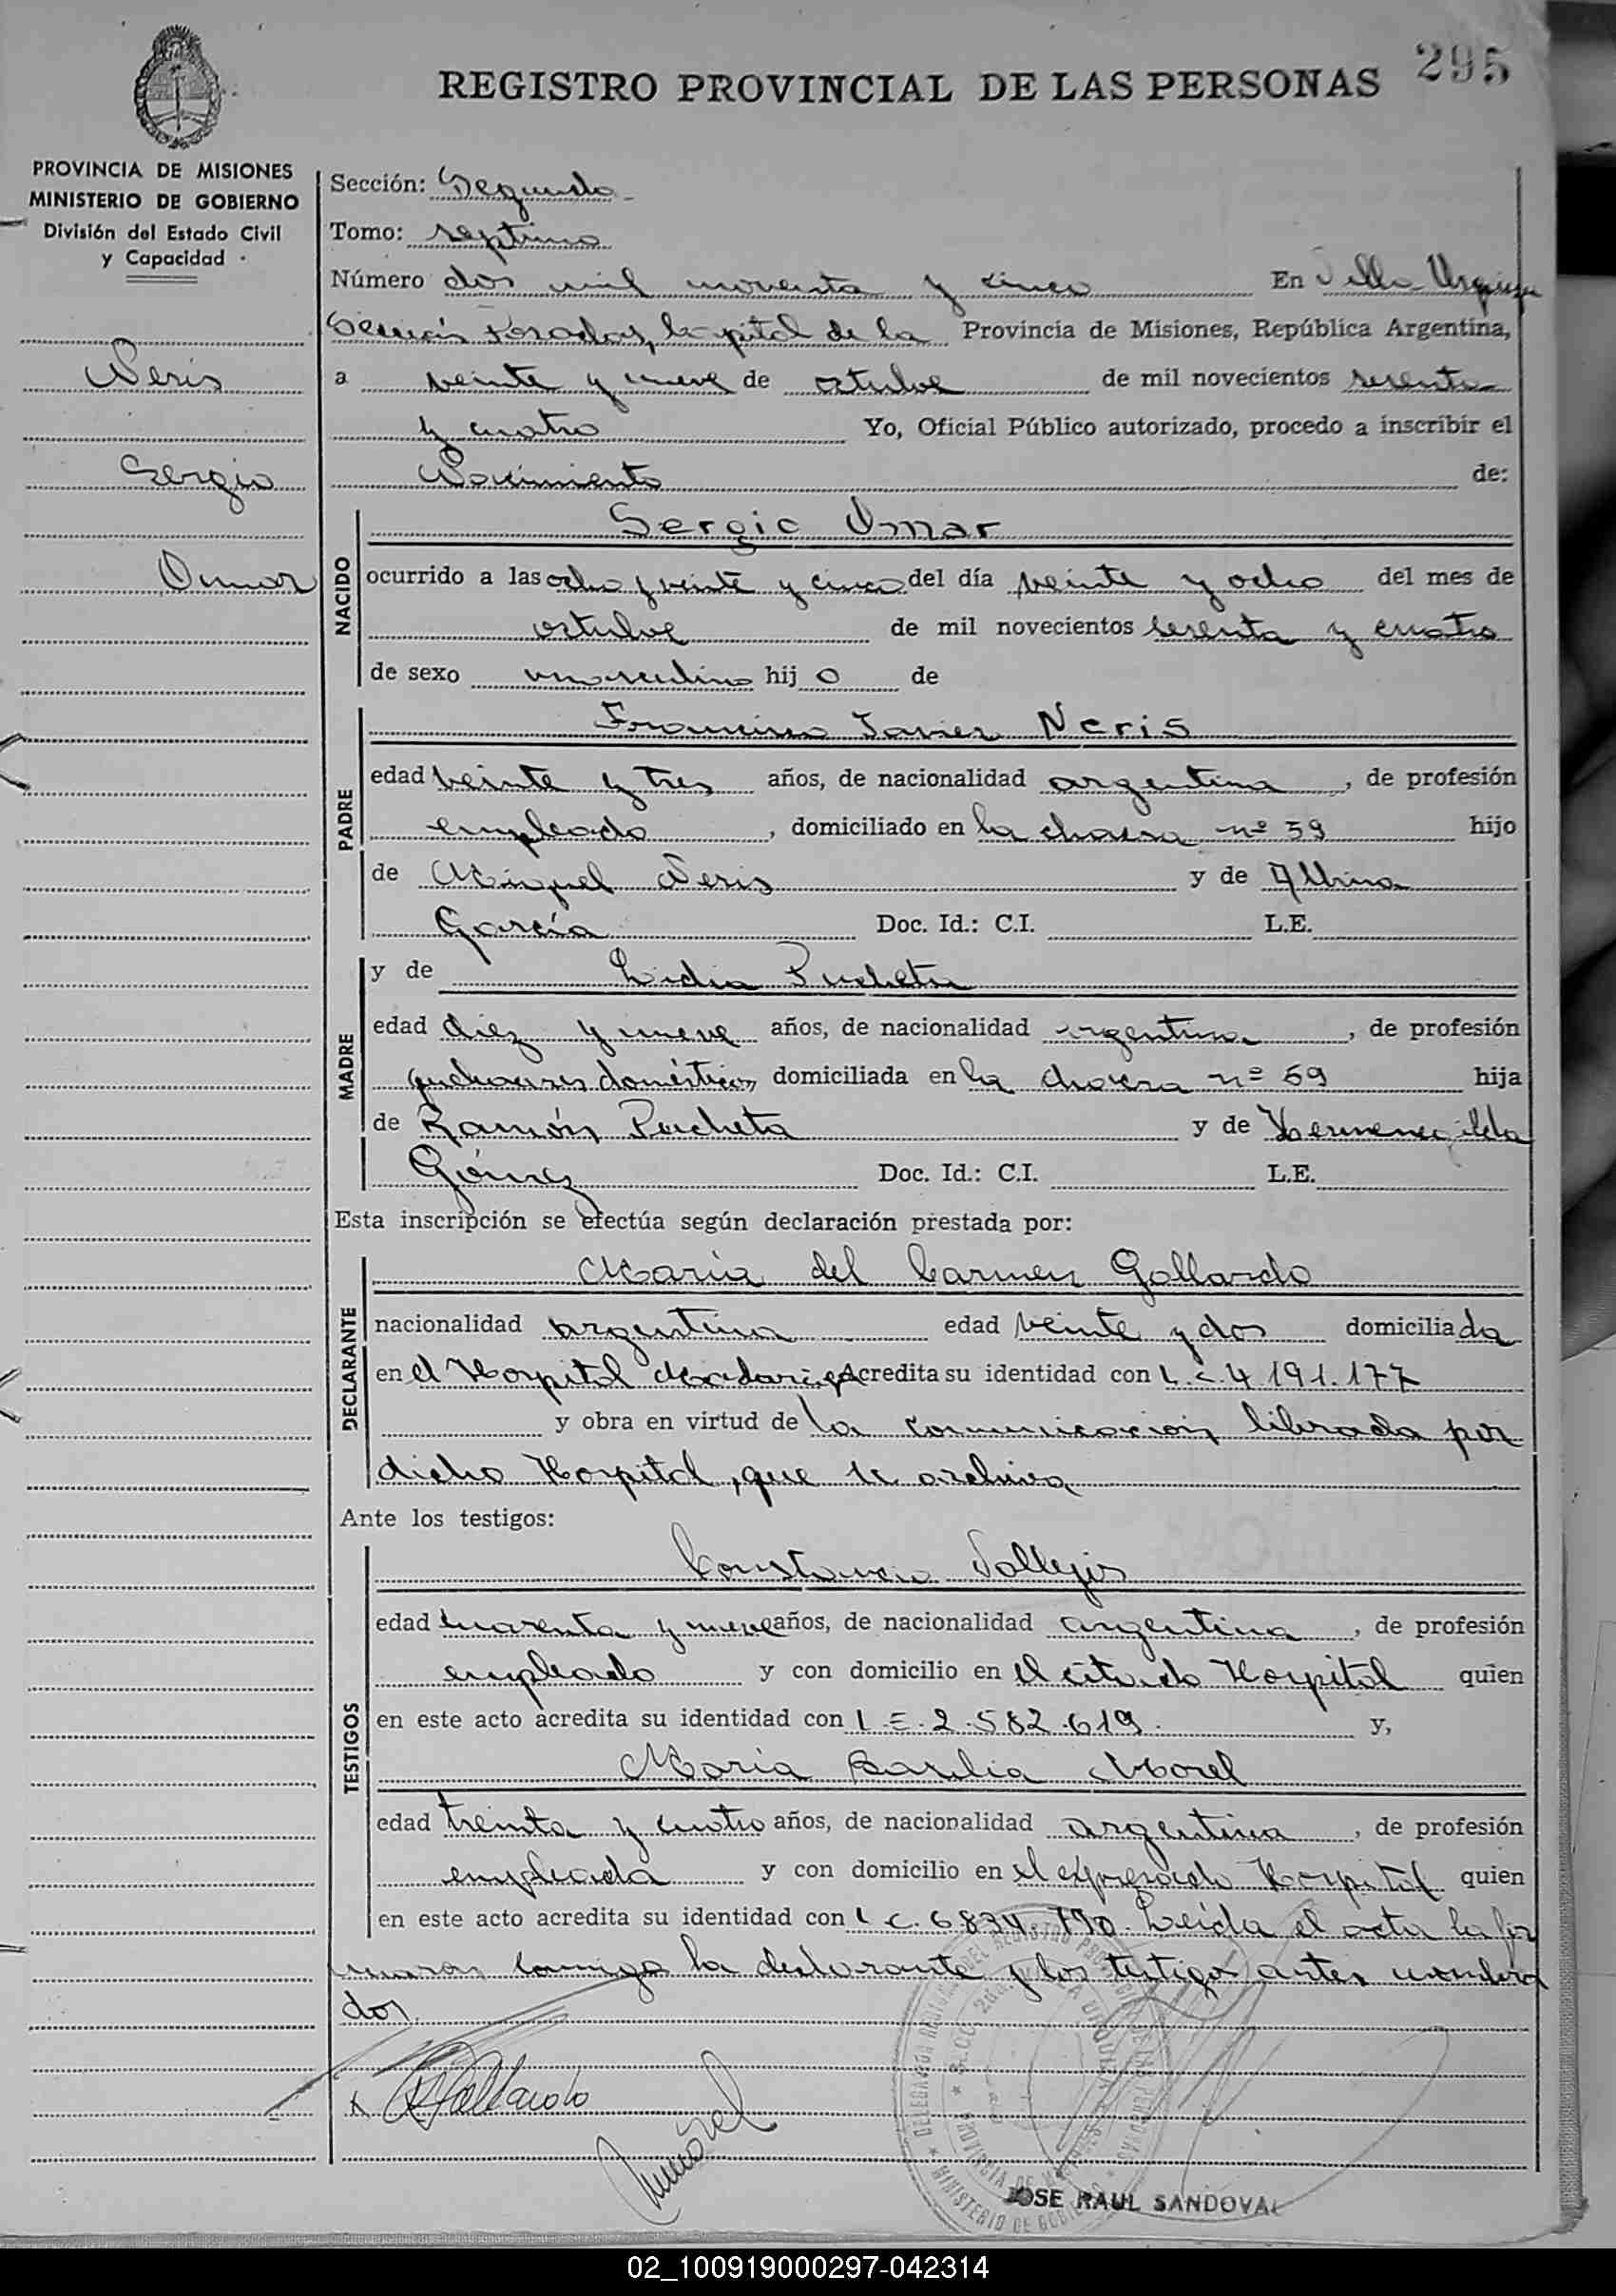 295
REGISTRO PROVINCIAL DE LAS PERSONAS
PROVINCIA DE MISIONES
MINISTERIO DE GOBIERNO
División del Estado Civil
y Capacidad
Neris
Sergio
Omar
Sección: Segunda
Tomo: septimo
Número dos mil noventa y cinco En Villa Urquiza
Sección Posadas, Capital de la Provincia de Misiones, República Argentina,
a veinte y nueve de octubre de mil novecientos sesenta
y cuatro Yo, Oficial Público autorizado, procedo a inscribir el
Nacimiento de:
NACIDO
Sergio Omar
ocurrido a las ocho y veinte y cinco del día veinte y ocho del mes de
octubre de mil novecientos sesenta y cuatro
de sexo masculino hij o de
PADRE
Francisco Javier Neris
edad veinte y tres años, de nacionalidad argentina, de profesión
empleado, domiciliado en la chacra nº 59 hijo
de Miguel Neris y de Albina
García Doc. Id.: C.I. L.E.
MADRE
y de Lidia Pucheta
edad diez y nueve años, de nacionalidad argentina, de profesión
quehaceres domésticos, domiciliada en la chacra nº 59 hija
de Ramón Pucheta y de Hermenegilda
Gómez Doc. Id.: C.I. L.E.
Esta inscripción se efectúa según declaración prestada por:
DECLARANTE
María del Carmen Gallardo
nacionalidad argentina edad veinte y dos domiciliada
en el Hospital Madariaga Acredita su identidad con L.C. 4.191.177
y obra en virtud de la comunicación librada por
dicho Hospital, que se archiva
Ante los testigos:
TESTIGOS
Constancio Vallejos
edad cuarenta y nueve años, de nacionalidad argentina, de profesión
empleado y con domicilio en el citado Hospital quien
en este acto acredita su identidad con L.E. 2.582.619. y,
María Basilia Morel
edad treinta y cuatro años, de nacionalidad argentina, de profesión
empleada y con domicilio en el expresado Hospital quien
en este acto acredita su identidad con L.C. 6.834.790. Leída el acta la fir
maron conmigo la declarante y los testigos antes nombra
dos.
Gallardo
Morel
JOSE RAUL SANDOVAL
02_100919000297-042314